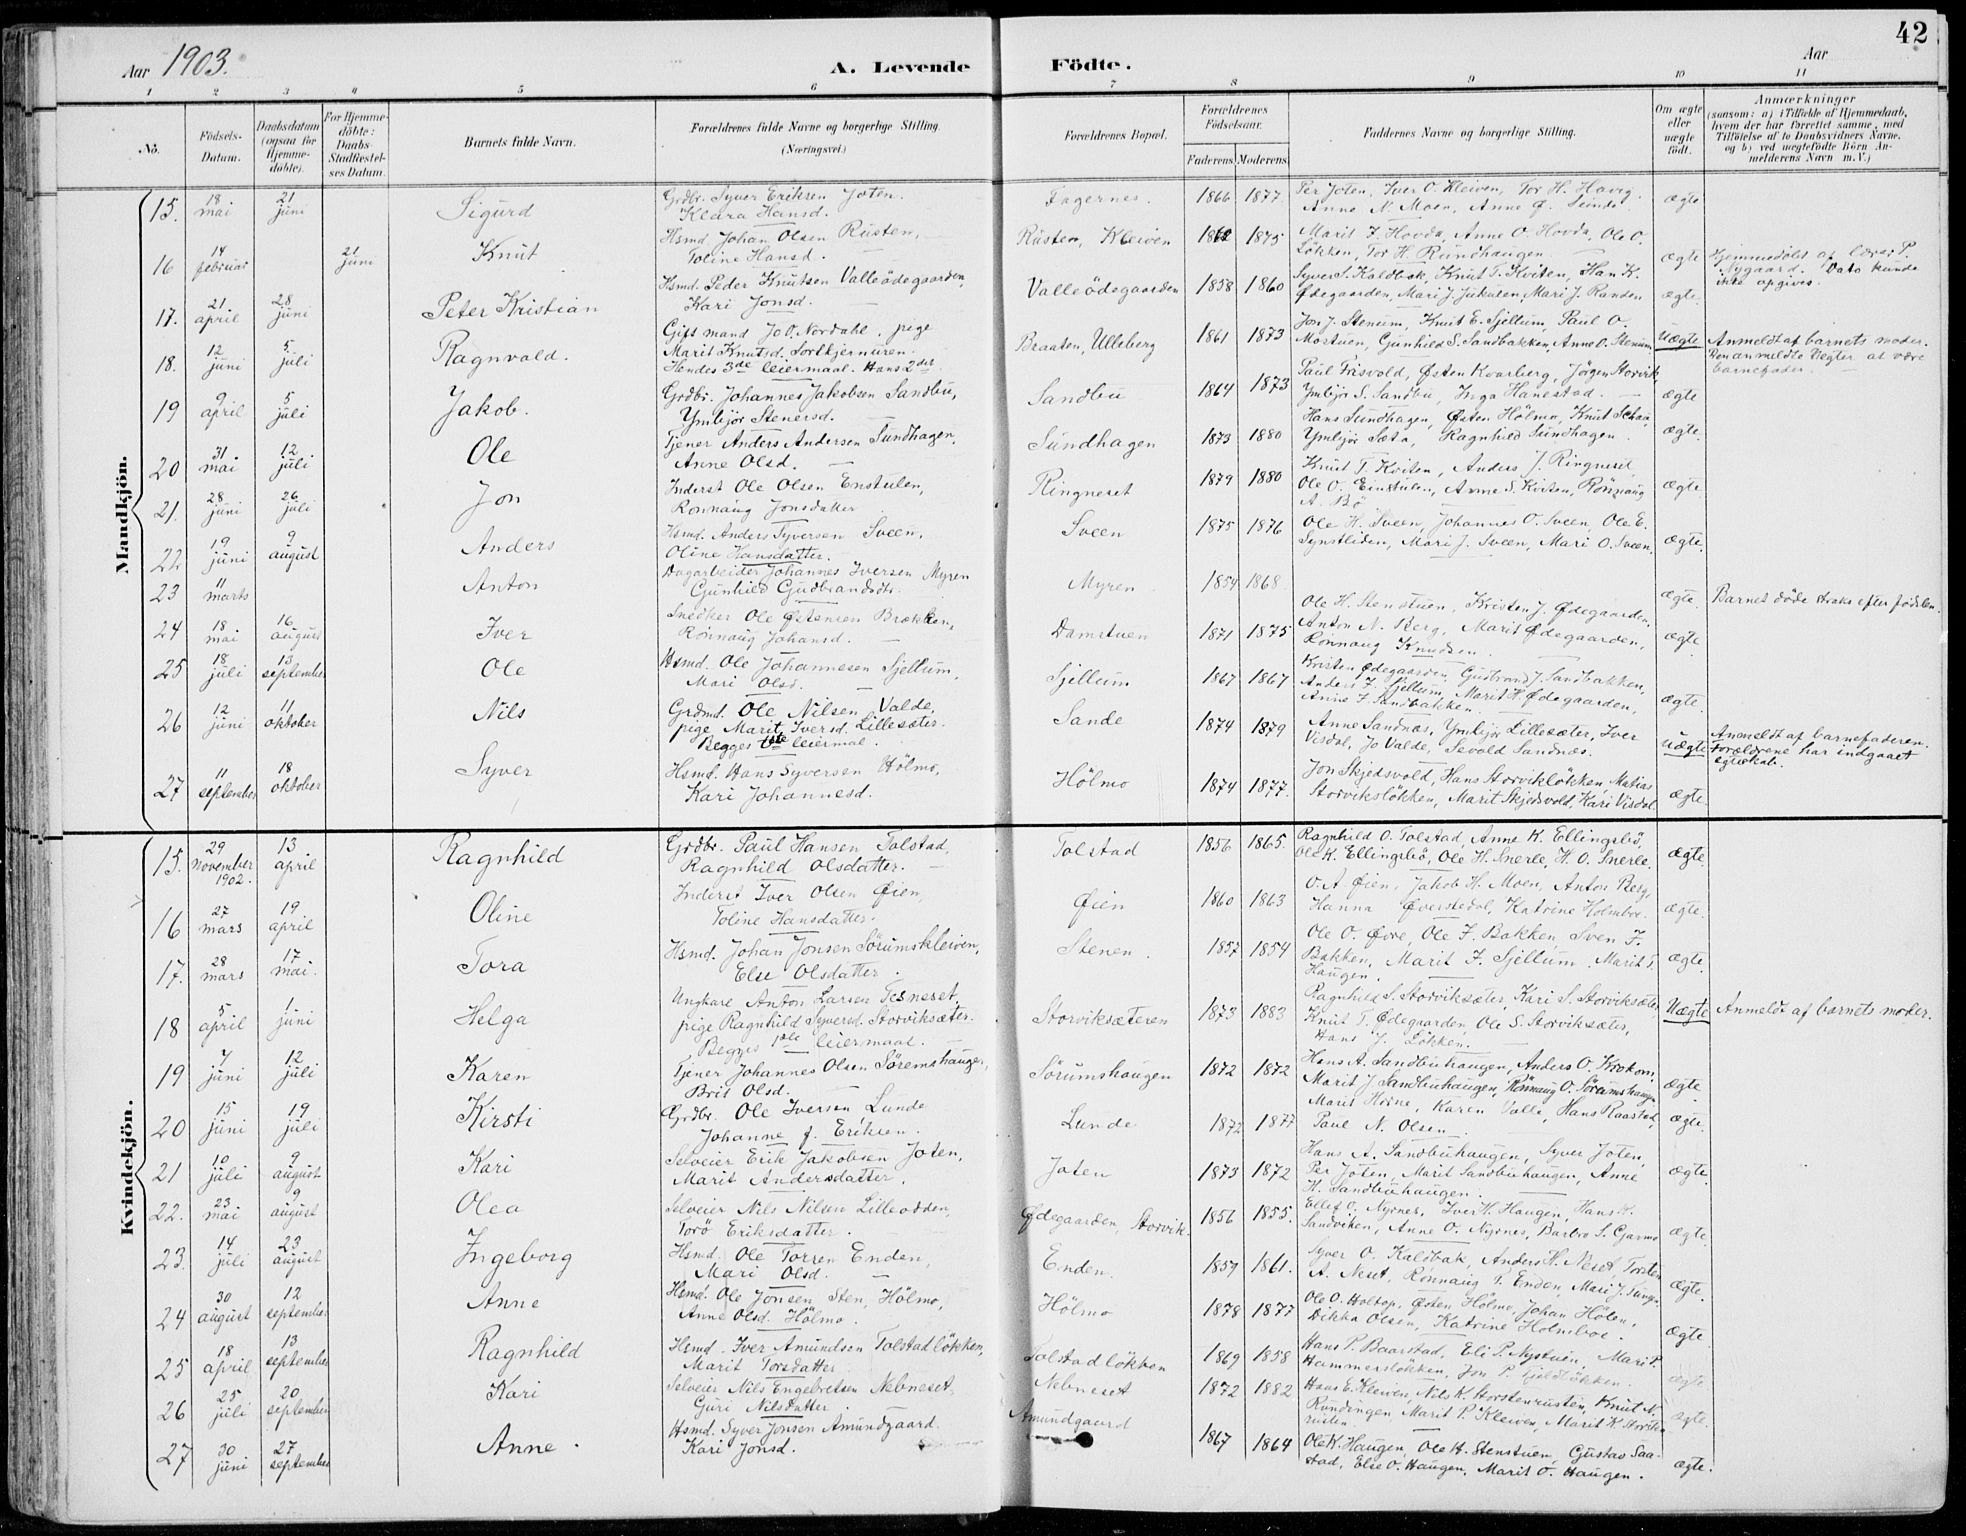 42
Aar 1903.
A. Levende Födte.
Aar
1 2 3 4 5 6 7 8 9 10 11
No.
Födsels-Datum.
Daabsdatum (ogsaa for Hjemme-döbte).
For Hjemme-döbte: Daabs-Stadfæstel-ses Datum.
Barnets fulde Navn.
Forældrenes fulde Navne og borgerlige Stilling. (Næringsvei.)
Forældrenes Bopæl.
Forældrenes Födselsaar.
Faderens. Moderens.
Faddernes Navne og borgerlige Stilling.
Om ægte eller uægte födt.
Anmærkninger
(saasom: a) i Tilfælde af Hjemmedaab, hvem der har forrettet samme, med Tilföielse af to Daabsvidners Navne, og b) ved uægtefödte Börn An-melderens Navn m. V.)
Mandkjön.
15. 18 mai 21 juni Sigurd Grdbr. Syver Eriksen Joten. Klara Hansd. Fagernes. 1866 1877. Per Joten, Iver O. Kleiven, Tor H. Havig. Anne N. Moen, Anne O. Sunde. ægte
16 14 februar 21 juni Knut Hsmd. Johan Olsen Rusten, Toline Hansd. Rusten, Kleiven 1875 Marit J. Hovda, Anne O. Hovda, Ole O. Lökken, Tor H. Rundhaugen ægte Hjemmedöbt af lærer P. Nygaard. Dato kunde ikke opgives.
17. 21 april 28 juni Peter Kristian Hsmd. Peder Knutsen Valleödegaarden, Kari Jonsd. Valleödegaarden 1858 1860 Syver S. Kaldbak, Knut T. Kviten, Han K. Ödegaarden, Mari J. Jukulen, Mari J. Randen ægte.
18. 12 juni 5 juli Ragnvald. Gift mand Jo O. Nordahl. pige Marit Knutsd. Sortkjernuren. Hendes 3de leiermaal. Hans 2det Braaten, Ulleberg 1861 1873 Jon J. Stenum, Knut E. Sjellum, Paul O. Mostuen, Gunhild S. Sandbakken, Anne O. Stenum. Uægte Anmeldt af barnets moder. Den anmeldte negter at være barnefader.
19 9 april 5 juli Jakob. Grdbr. Johannes Jakobsen Sandbu, Ymbjör Stenersd. Sandbu 1864 1873 Paul Fasvold, Østen Kvarberg, Jörgen Storvik, Ymbjör S. Sandbu, Inga Hanestad. ægte
20 31. mai 12 juli Ole Tjener Anders Andersen Sundhagen, Anne Olsd. Sundhagen 1873 1880 Hans Sundhagen, Østen Hölmo, Knut Schau, Ymbjör Sæta, Ragnhild Sundhagen. ægte.
21. 28 juni 26 juli Jon Inderst Ole Olsen Enstulen, Ronnaug Jonsdatter Ringneset 1879 1880 Knut T. Kviten, Anders J. Ringneset, Ole O. Einstulen, Anne S. Kviten, Rönnaug A. Bö ægte.
22. 19 juni 9 august Anders Hsmd. Anders Syversen Sveen, Oline Hansdatter. Sveen 1875 1876 Ole H. Sveen, Johannes O. Sveen, Ole E. Synstlien, Mari J. Sveen, Mari O. Sveen. ægte.
23 11 marts Anton Dagarbeider Johannes Iversen Myren Gunhild Gudbrandsdtr. Myren 1854 1868 ægte. Barnet döde straks efter födslen.
24 18 mai 16 august Iver Snedker Ole Østensen Brækken, Rönnaug Johansd. Damstuen 1871 1875 Ole H. Stenstuen, Kristen J. Ødegaarden, Anton N. Berg, Marit Ødegaarden, Rönnaug Knudsen. ægte
25 18 juli 13 september Ole Hsmd. Ole Johannesen Sjellum, Mari Olsd. Sjellum 1867 1867 Kristen Ødegaarden, Gudbrand J. Sandbakken, Anders J. Sjellum, Marit H. Ødegaarden, Anne J. Sandbakken. ægte.
26 12 juni 11 oktober Nils Grdmd. Ole Nilsen Valde, pige Marit Iversd. Lillesæter. Begges 1ste leiermal. Sande 1874 1879 Anne Sandnæs, Ymbjör Lillesæter, Iver Visdal, Jo Valde, Sevald Sandnæs. Uægte Anmeldt af barnefaderen. Forældrene har indgaaet egteskab.
27 11 september 18 oktober Syver Hsmd. Hans Syversen Hölmo, Kari Johannesd. Hölmo 1874 1877. Jon Skjedsvold, Hans Storviklökken, Matias Storvikslökken, Marit Skjedsvold, Kari Visdal. ægte.
Kvindekjön.
15. 29 November 1902. 13 april Ragnhild Grdbr. Paul Hansen Tolstad, Ragnhild Olsdatter. Tolstad 1856 1865. Ragnhild O. Tolstad, Anne K. Ellingsbö, Ole K. Ellingsbö, Ole H. Snerle, H. O. Snerle. ægte.
16 27 mars 19 april Oline Inderst Iver Olsen Øien, Toline Hansdatter. Øien 1860 1863 O. A. Øien, Jakob H. Moen, Anton Berg, Hanna Øverstedal, Katrine Holmboe. ægte.
17. 28 mars 17 mai. Tora Hsmd. Johan Jonsen Sörumskleiven, Else Olsdatter. Stenen. 1857 1854 Ole O. Øvre, Ole J. Bakken, Sven J. Bakken, Marit J. Sjellum, Marit T. Haugen. ægte.
18 5 april 1. juni Helga Ungkarl Anton Larsen Tesneset, pige Ragnhild Syversd. Storviksæter. Begges 1ste leiermaal. Storviksæteren 1873 1883 Ragnhild S. Storviksæter, Kari S. Storviksæter, Knut T. Ødegaarden, Ole S. Storviksæter, Hans J. Lökken. Uægte Anmeldt af barnets moder.
19 7 juni 12 juli Karen Tjener Johannes Olsen Söremshaugen, Brit Olsd. Sörumshaugen 1872 1872 Hans A. Sandbuhaugen, Anders O. Krokom, Marit J. Sandbuhaugen, Rönnaug O. Sörumshaugen ægte.
20 15 juni 19 juli Kirsti Grdbr. Ole Iversen Lunde Johanne J. Eriksen. Lunde 1872 1877 Marit Horne, Karen Valle, Hans Raastad, Paul N. Olsen ægte.
21 10 juli 9 august Kari Selveier Erik Jakobsen Joten, Marit Andersdatter. Joten 1873 1872 Hans A. Sandbuhaugen, Syver Joten, Per Joten, Marit Sandbuhaugen, Anne H. Sandbuhaugen. ægte.
22. 23 mai 9 august Olea Selveier Nils Nilsen Lilleodden, Torö Eriksdatter. Ødegaarden, Storvik. 1856 1855. Ellef O. Nyrnes, Iver H. Haugen, Hans Sandviken, Anne O. Nyrnes, Barbro S. Garmo ægte.
23. 14 juli 23 august Ingeborg Hsmd. Ole Torsen Enden, Mari Olsd. Enden. 1859 1861. Syver O. Kaldbak, Anders H. Neset, Torsten A. Neset, Rönnaug T. Enden, Mari J. ægte.
24 30 august 12 september Anne Hsmd. Ole Jonsen Sten, Hölmo, Anne Olsd. Hölmo. Hölmo 1878 1877 Ole O. Holtop, Østen Hölmo, Johan Hölen, Dikka Olsen, Katrine Holmboe. ægte
25 18 april 13 september Ragnhild Hsmd. Iver Amundsen Tolstadlökken, Marit Torsdatter Tolstadlökken 1869 1858 Hans P. Baarstad, Eli P. Nystuen, Mari P. Hammerslökken, Jon P. ægte
26 25 juli 20 september Kari Selveier Nils Engebretsen Nebneset, Guri Nilsdatter Nebneset 1872 1882 Hans E. Kleiven, Nils K. Storstenrusten, Knut N. Rundingen, Marit P. Kleiven, Marit K. Storsten rusten. ægte.
27 30 juni 27 september Anne. Hsmd. Syver Jonsen Amundgaard. Kari Jonsd. Amundgaard 1867 1864 Ole K. Haugen, Ole H. Stenstuen, Gustav Saa-stad, Else O. Haugen, Marit O. Haugen. ægte.